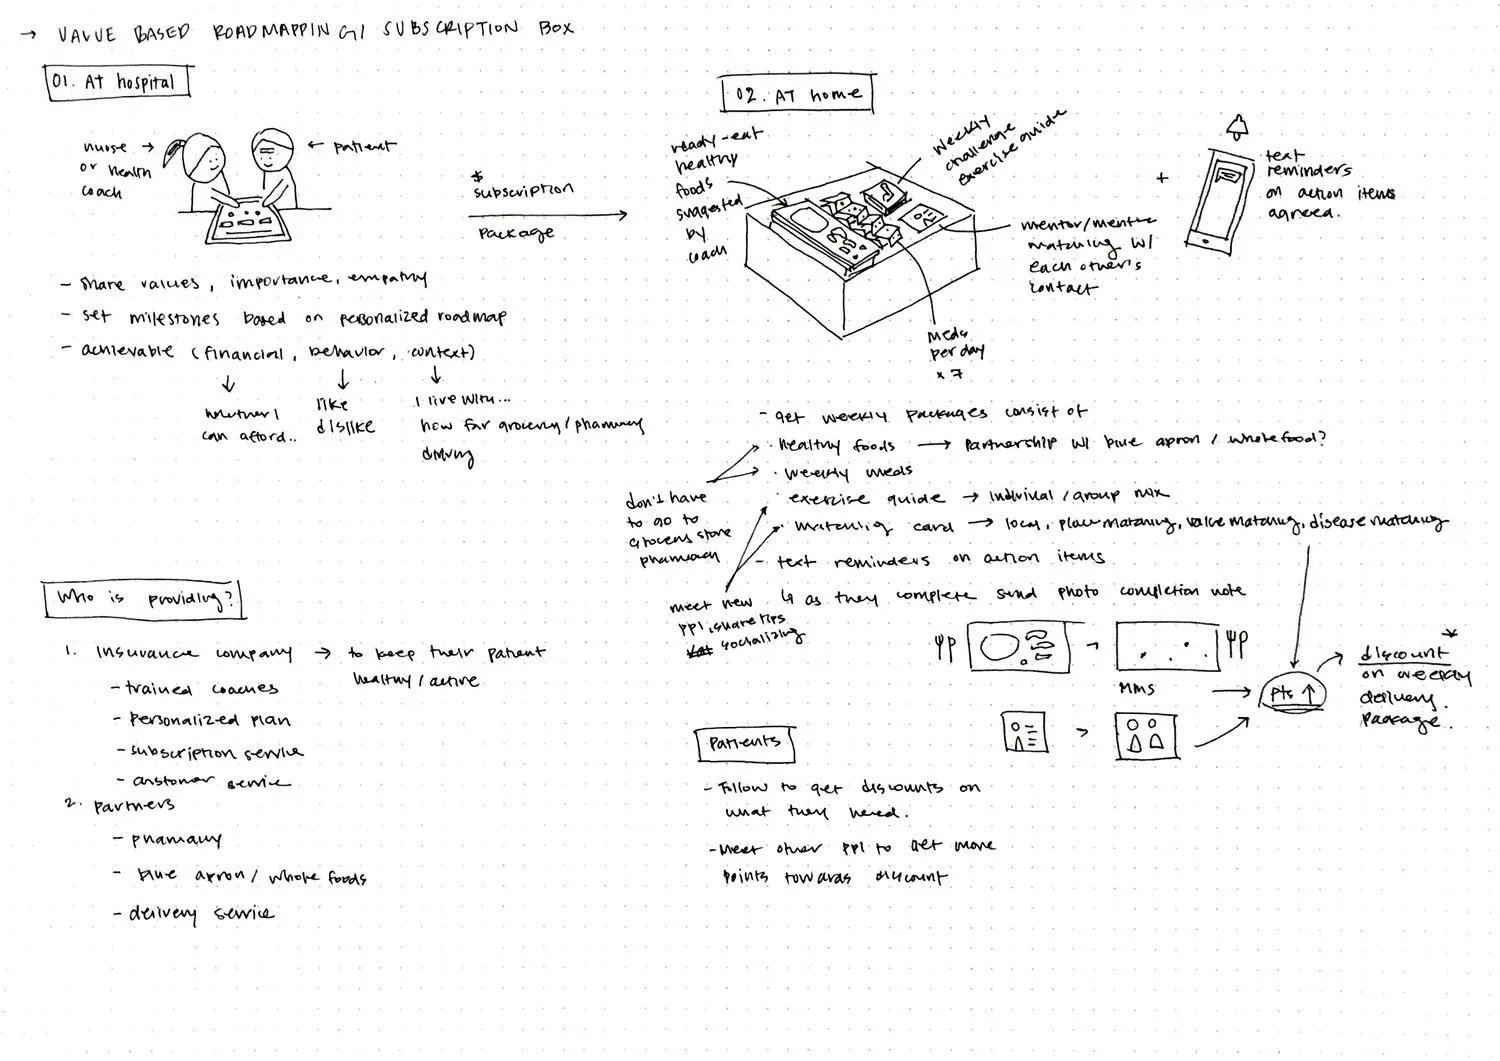 → VALUE BASED ROADMAPPING / SUBSCRIPTION BOX
01. AT hospital
nurse →
or health
coach
← patient
$
subscription
package
- share values, importance, empathy
- set milestones based on personalized roadmap
- achievable (financial, behavior, context)
whether I
can afford..
like
dislike
I live with...
how far grocery / pharmacy
driving
02. AT home
ready-eat
healthy
foods
suggested
by
coach
weekly
challenge
exercise guide
mentor/mentee
matching w/
each other's
contact
meds
per day
x 7
+
text
reminders
on action items
agreed.
- get weekly packages consist of
· healthy foods → partnership w/ blue apron / wholefood?
· weekly meds
· exercise guide → individual / group mix
· matching card → local, place matching, value matching, disease matching
- text reminders on action items
↳ as they complete send photo completion note
don't have
to go to
grocery store
pharmacy
meet new
ppl, share tips
socializing
MMS
pts ↑
*
discount
on weekly
delivery
package.
Who is providing?
1. Insurance company → to keep their patient
healthy / active
- trained coaches
- personalized plan
- subscription service
- customer service
2. partners
- pharmacy
- blue apron / whole foods
- delivery service
Patients
- Follow to get discounts on
what they need.
- Meet other ppl to get more
points towards discount